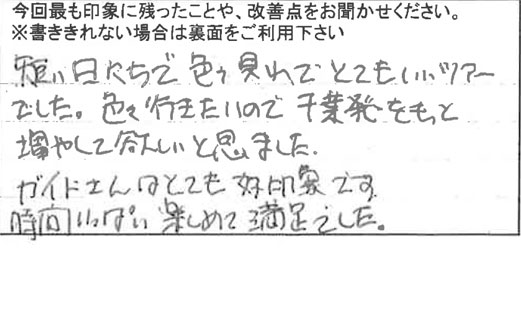 今回最も印象に残ったことや、改善点をお聞かせください。
※書ききれない場合は裏面をご利用下さい
短い日にちで色々見れてとてもいいツアー
でした。色々行きたいので千葉発をもっと
増やして欲しいと思いました.
ガイドさんはとても好印象です。
時間いっぱい楽しめて満足でした。